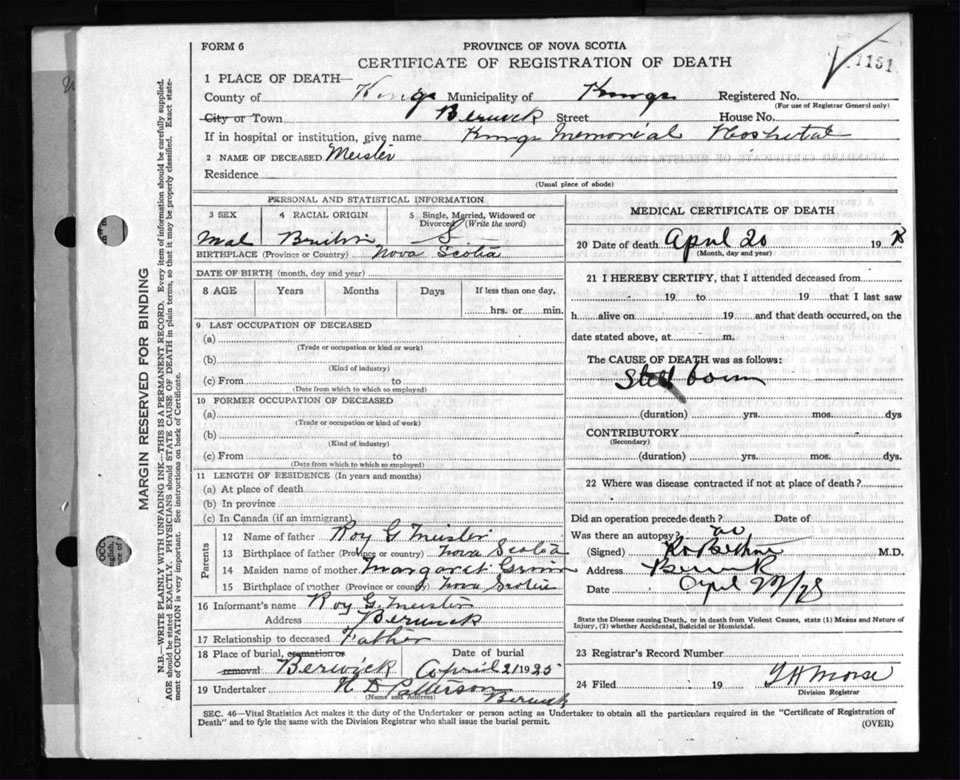 FORM 6
PROVINCE OF NOVA SCOTIA
CERTIFICATE OF REGISTRATION OF DEATH
1151
1 PLACE OF DEATH—
County of Kings Municipality of Kings Registered No.
(For use of Registrar General only)
City or Town Berwick Street House No.
If in hospital or institution, give name Kings Memorial Hospital
2 NAME OF DECEASED Meister
Residence
(Usual place of abode)
PERSONAL AND STATISTICAL INFORMATION
3 SEX 4 RACIAL ORIGIN 5 Single, Married, Widowed or Divorced (Write the word)
Mal S
BIRTHPLACE (Province or Country) Nova Scotia
DATE OF BIRTH (month, day and year)
8 AGE Years Months Days If less than one day,
hrs. or min.
9 LAST OCCUPATION OF DECEASED
(a)
(Trade or occupation or kind or work)
(b)
(Kind of industry)
(c) From to
(Date from which to which so employed)
10 FORMER OCCUPATION OF DECEASED
(a)
(Trade or occupation or kind of work)
(b)
(Kind of industry)
(c) From to
(Date from which to which so employed)
11 LENGTH OF RESIDENCE (In years and months)
(a) At place of death
(b) In province
(c) In Canada (if an immigrant)
Parents
12 Name of father Roy G Meister
13 Birthplace of father (Province or country) Nova Scotia
14 Maiden name of mother Margaret
15 Birthplace of mother (Province or country) Nova Scotia
16 Informant's name Roy G. Meister
Address Berwick
17 Relationship to deceased Father
18 Place of burial, cremation or removal Berwick Date of burial April 21 1925
19 Undertaker N D Patterson Berwick
(Name and Address)
MEDICAL CERTIFICATE OF DEATH
20 Date of death April 20 19
(Month, day and year)
21 I HEREBY CERTIFY, that I attended deceased from
19 to 19 that I last saw
h alive on 19 and that death occurred, on the
date stated above, at m.
The CAUSE OF DEATH was as follows:
Still born
(duration) yrs. mos. dys
CONTRIBUTORY
(Secondary)
(duration) yrs. mos. dys.
22 Where was disease contracted if not at place of death?
Did an operation precede death? Date of
Was there an autopsy? no
(Signed) M.D.
Address Berwick
Date April
State the Disease causing Death, or in death from Violent Causes, state (1) Means and Nature of
Injury, (2) whether Accidental, Suicidal or Homicidal.
23 Registrar's Record Number
24 Filed 19
Division Registrar
SEC. 46—Vital Statistics Act makes it the duty of the Undertaker or person acting as Undertaker to obtain all the particulars required in the "Certificate of Registration of
Death" and to fyle the same with the Division Registrar who shall issue the burial permit.
(OVER)
MARGIN RESERVED FOR BINDING
N.B.—WRITE PLAINLY WITH UNFADING INK—THIS IS A PERMANENT RECORD. Every item of information should be carefully supplied.
AGE should be stated EXACTLY. PHYSICIANS should STATE CAUSE OF DEATH in plain terms, so that it may be properly classified. Exact state-
ment of OCCUPATION is very important. See instructions on back of Certificate.